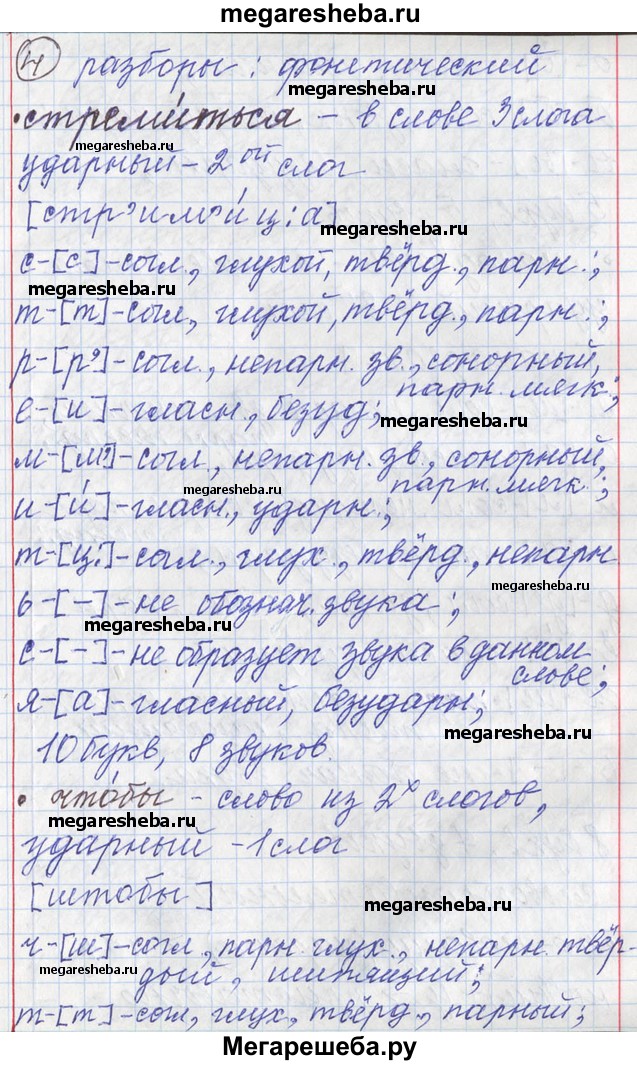 megaresheba.ru
4 разборы: фонетический
megaresheba.ru
• стреми́ться – в слове 3 слога
megaresheba.ru
ударный – 2ой слог
[стр'им'и́ц:а]
megaresheba.ru
с-[с]-согл., глухой, твёрд., парн.;
megaresheba.ru
т-[т]-согл, глухой, твёрд., парн.;
р-[р']-согл., непарн. зв., сонорный,
парн. мягк.;
е-[и]-гласн., безуд.;
megaresheba.ru
м-[м']-согл, непарн. зв., сонорный,
парн. мягк.;
megaresheba.ru
и-[и́]-гласн., ударн.;
т-[ц:]-согл., глух., твёрд., непарн
megaresheba.ru
ь-[–]-не обознач. звука;
megaresheba.ru
с-[-]-не образует звука в данном
слове;
я-[а]-гласный, безударн;
megaresheba.ru
10 букв, 8 звуков.
megaresheba.ru
• что́бы – слово из 2х слогов,
megaresheba.ru
ударный – 1 слог
[штобы]
megaresheba.ru
ч-[ш]-согл., парн. глух., непарн. твёр-
megaresheba.ru
дый, шипящий;
т-[т]-согл, глух, твёрд., парный;
Мегарешеба.ру